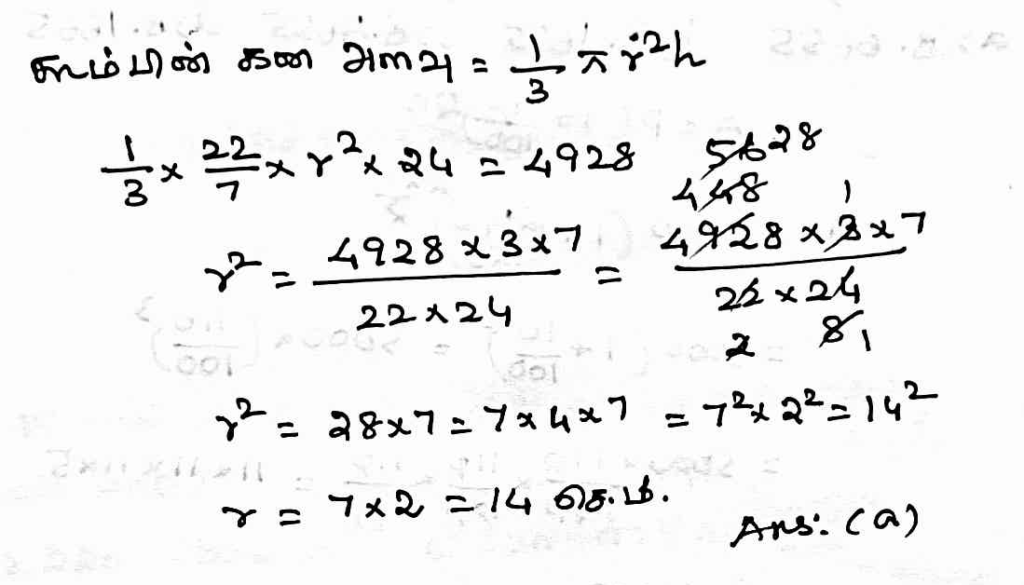 கூம்பின் கன அளவு = 1/3 π r²h
1/3 × 22/7 × r² × 24 = 4928
r² = 4928 × 3 × 7 / 22 × 24 = 4928 × 3 × 7 / 22 × 24
448 56 28 1
2 8 1
r² = 28×7 = 7×4×7 = 7²×2² = 14²
r = 7×2 = 14 செ.மீ.
Ans: (a)